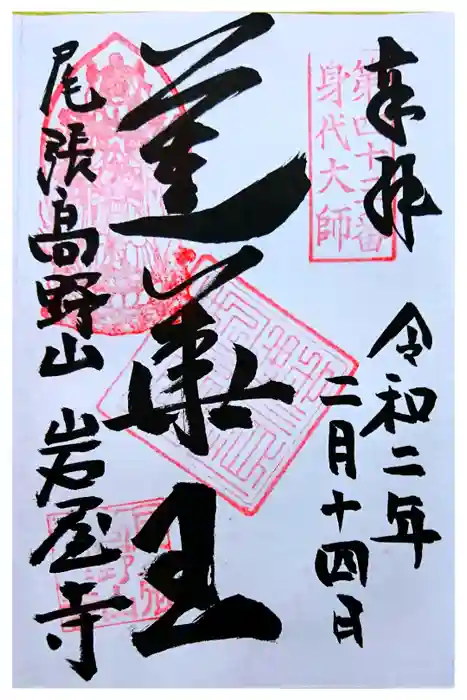 奉拝
第四十三番
身代大師
令和二年
二月十四日
蓮華王
尾張高野山 岩屋寺